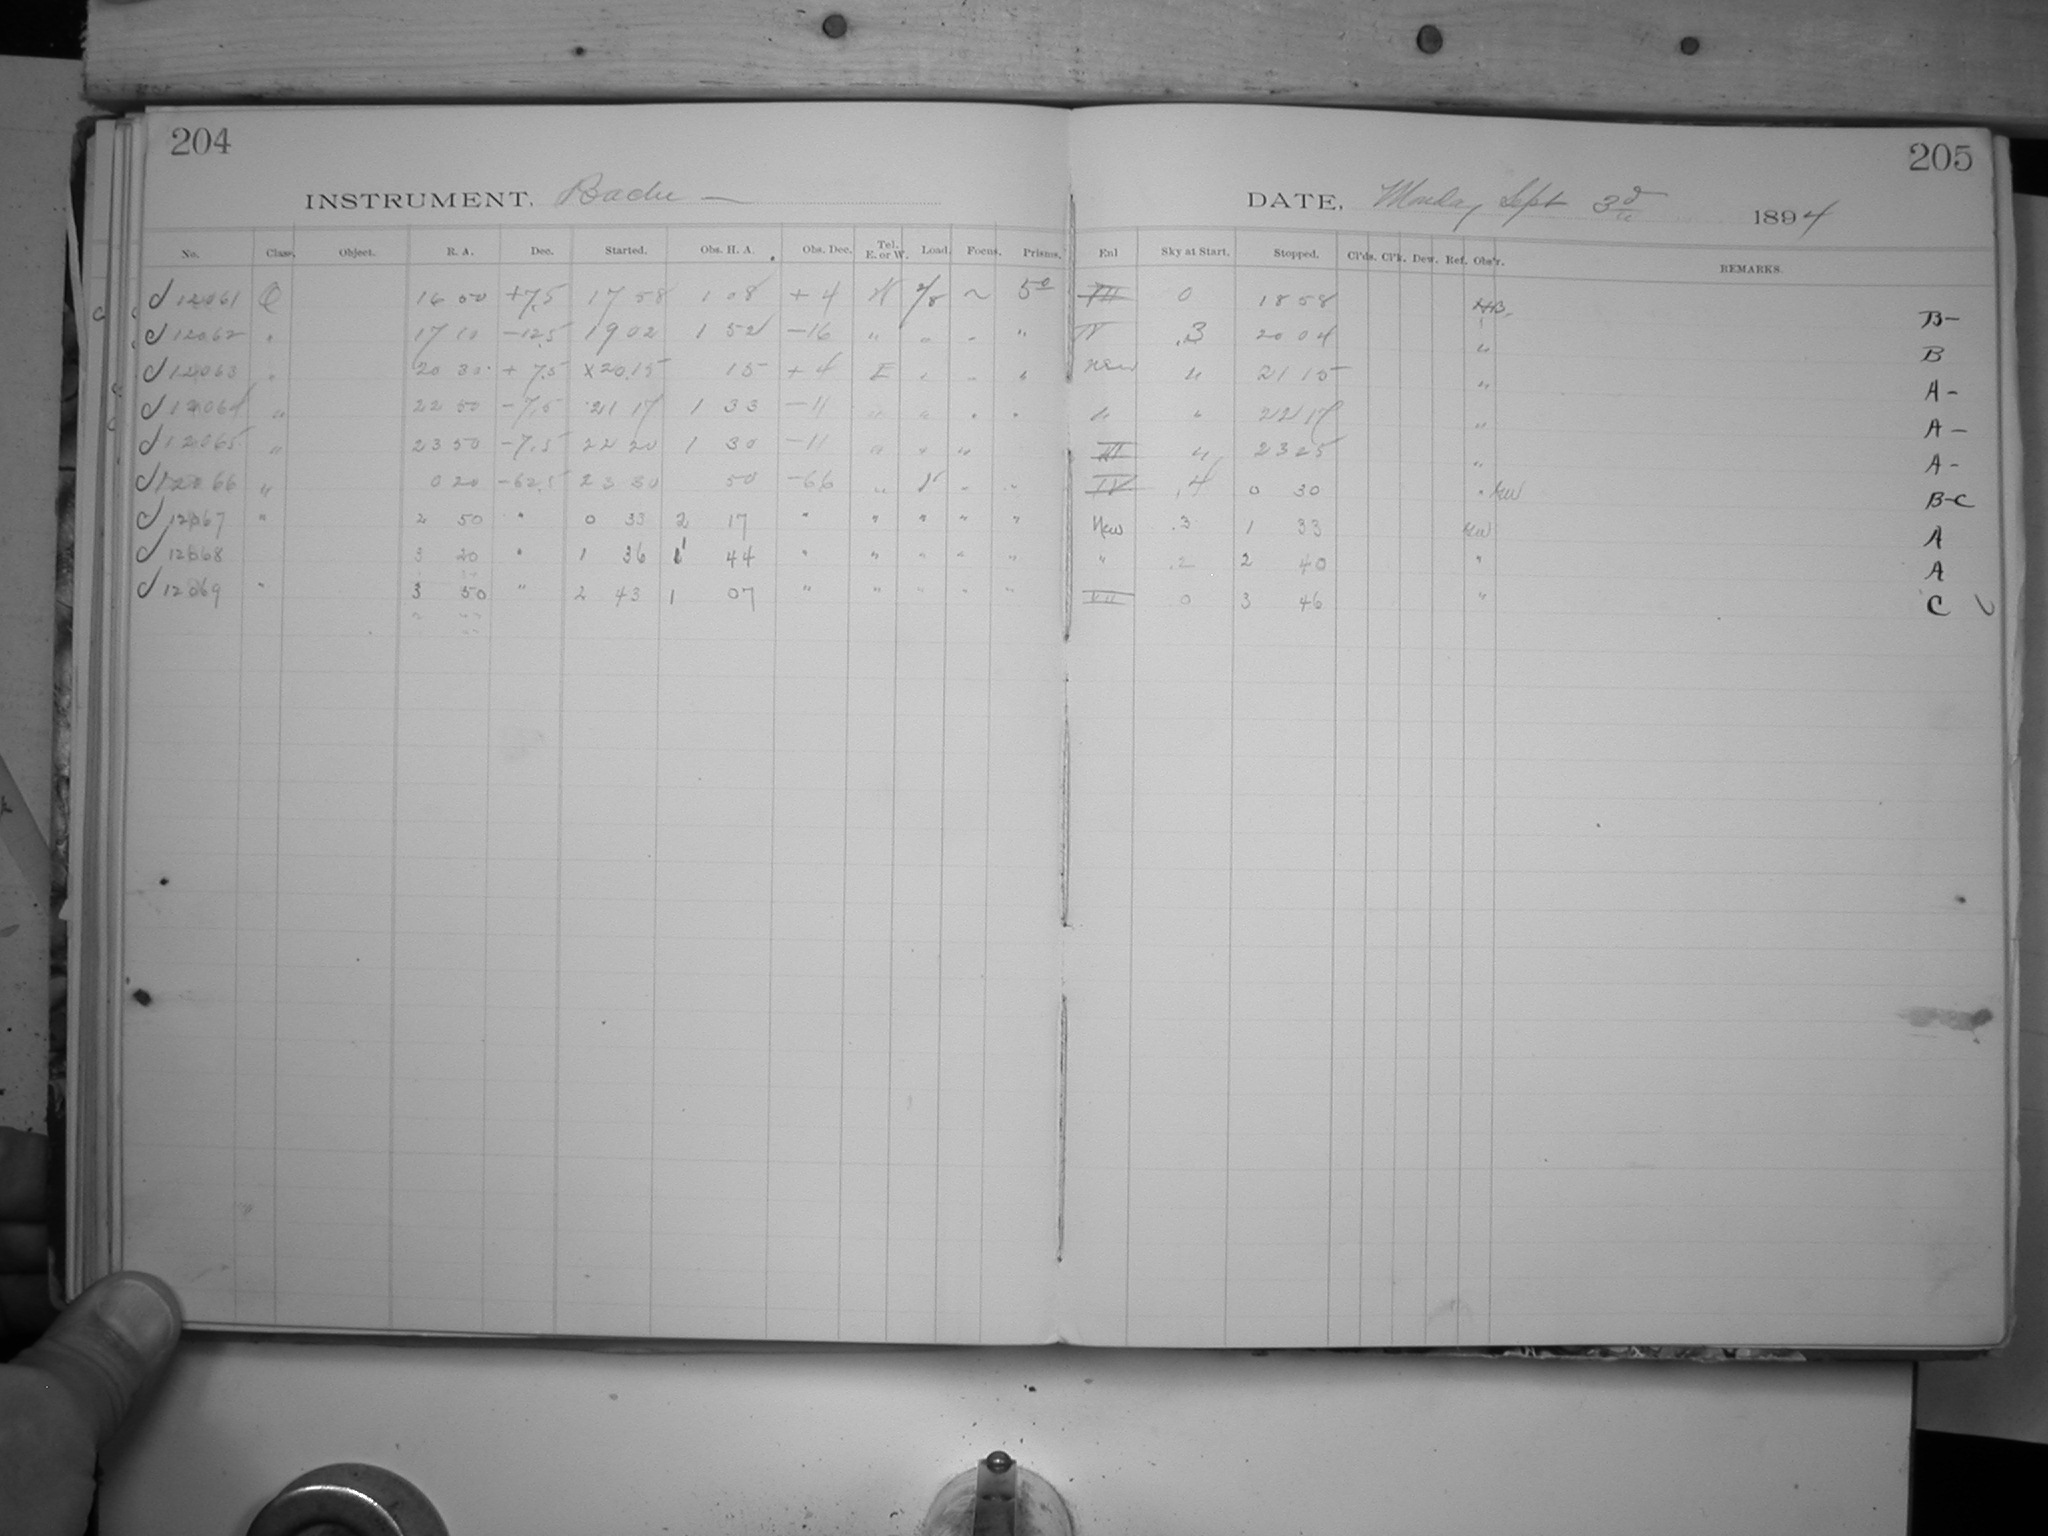 204
205
INSTRUMENT, Bache —
DATE, Monday Sept 3d 1894
No. Class. Object. R. A. Dec. Started. Obs. H. A. Obs. Dec. Tel. E. or W. Load. Focus. Prisms. Enl Sky at Start. Stopped. Cl'ds. Cl'k. Dew. Ref. Obs'r. REMARKS.
12061 Q 16 50 +7.5 17 58 1 08 +4 W ~ 50 VII 0 18 58 B-
12062 " 17 10 -12.5 19 02 1 52 -16 " " " " IV .3 20 04 " B
12063 " 20 30 + 7.5 X 20.15 15 +4 E " " " New " 21 15 " A-
12064 " 22 50 -7.5 21 17 1 33 -11 " " " " " " 22 17 " A-
12065 " 23 50 -7.5 22 20 1 30 -11 " " " III " 23 25 " A-
12066 " 0 20 -62.5 23 30 50 -66 " " " IV .4 0 30 " B-C
12067 " 2 50 " 0 33 2 17 " " " " " New .3 1 33 A
12068 3 20 " 1 36 1 44 " " " " " " .2 2 40 " A
12069 " 3 50 " 2 43 1 07 " " " " " VII 0 3 46 " C